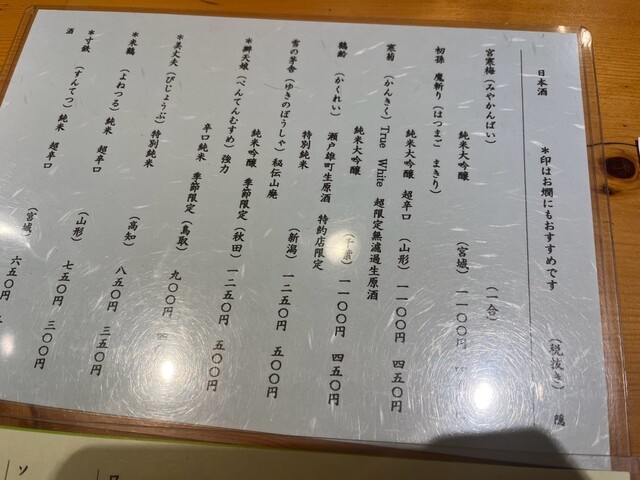 日本酒 *印はお燗にもおすすめです (税抜き) 隠
(一合)
宮寒梅(みやかんばい)
純米大吟醸 (宮城) 一一〇〇円
初孫 魔斬り(はつまご まきり)
純米大吟醸 超辛口 (山形) 一一〇〇円 四五〇円
寒菊(かんきく) True White 超限定無濾過生原酒
純米大吟醸 (千葉) 一一〇〇円 四五〇円
鶴齢(かくれい) 瀬戸雄町生原酒 特約店限定
特別純米 (新潟) 一二五〇円 五〇〇円
雪の茅舎(ゆきのぼうしゃ) 秘伝山廃
純米吟醸 季節限定 (秋田) 一二五〇円 五〇〇円
*辨天娘(べんてんむすめ) 強力
辛口純米 季節限定 (鳥取) 九〇〇円
*美丈夫(びじょうぶ) 特別純米 (高知) 八五〇円 三五〇円
*米鶴(よねつる) 純米 超辛口 (山形) 七五〇円 三〇〇円
*寸鉄(すんてつ) 純米 超辛口 (宮城) 六五〇円
酒
ソ